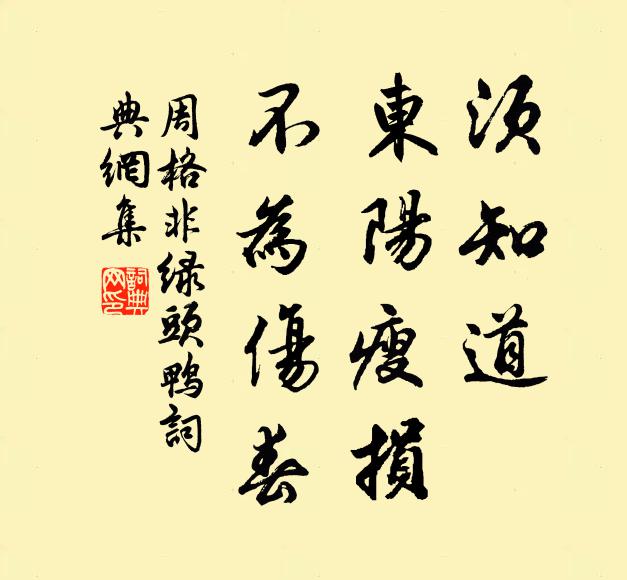 須知道
東陽瘦損
不為傷春
周格非綠頭鴨詞
典網集
詞典
网印